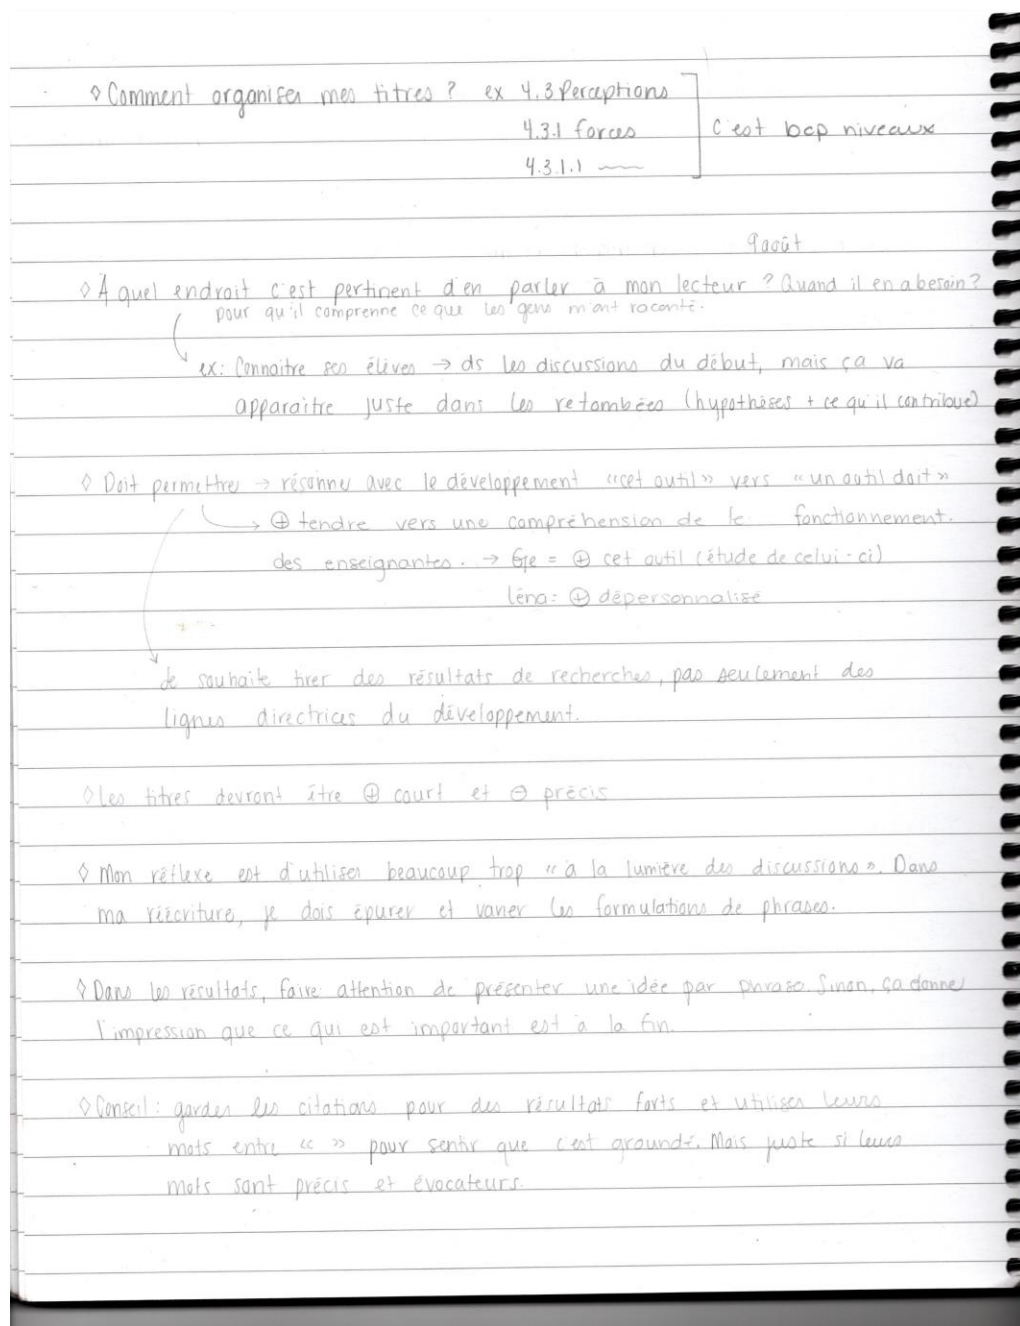 ◊ Comment organiser mes titres ? ex 4.3 Perceptions
4.3.1 forces
4.3.1.1
c'est bcp niveaux
9 août
◊ À quel endroit c'est pertinent d'en parler à mon lecteur ? Quand il en a besoin ?
pour qu'il comprenne ce que les gens m'ont raconté.
ex: Connaitre ses élèves → ds les discussions du début, mais ça va
apparaitre juste dans les retombées (hypothèses + ce qu'il contribue)
◊ Doit permettre → résonne avec le développement « cet outil » vers « un outil doit »
→ ⊕ tendre vers une compréhension de le fonctionnement.
des enseignantes. → Gre = ⊕ cet outil (étude de celui-ci)
Léna: ⊕ dépersonnalisé
Je souhaite tirer des résultats de recherches, pas seulement des
lignes directrices du développement.
◊ Les titres devront être ⊕ court et ⊖ précis
◊ Mon réflexe est d'utiliser beaucoup trop « à la lumière des discussions ». Dans
ma réécriture, je dois épurer et varier les formulations de phrases.
◊ Dans les résultats, faire attention de présenter une idée par phrase. Sinon, ça donne
l'impression que ce qui est important est à la fin.
◊ Conseil : garder les citations pour des résultats forts et utiliser leurs
mots entre « » pour sentir que c'est groundé. Mais juste si leurs
mots sont précis et évocateurs.